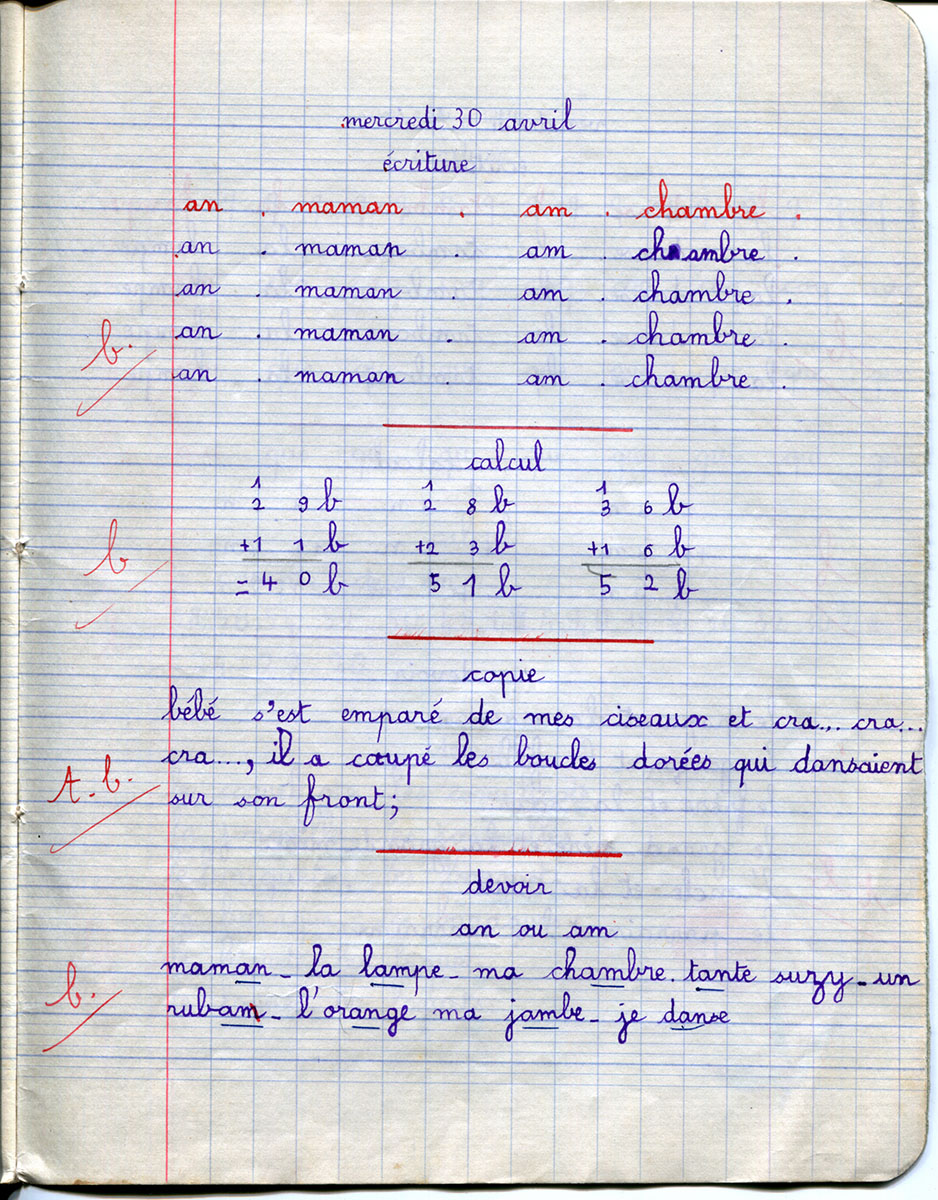 mercredi 30 avril
écriture
an . maman . am . chambre .
an . maman . am . chambre .
an . maman . am . chambre .
an . maman . am . chambre .
an . maman . am . chambre .
b.
calcul
1 1 1
2 9 b 2 8 b 3 6 b
+1 1 b +2 3 b +1 6 b
= 4 0 b 5 1 b 5 2 b
b
copie
bébé s'est emparé de mes ciseaux et cra... cra...
cra..., il a coupé les boucles dorées qui dansaient
sur son front;
A. b.
devoir
an ou am
maman - la lampe - ma chambre. tante suzy - un
ruban - l'orange ma jambe - je danse
b.